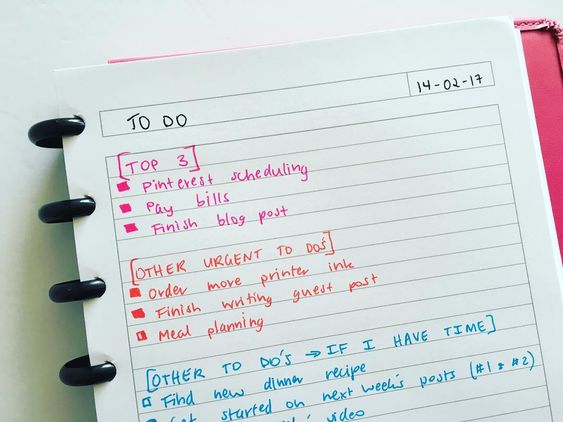 14-02-17
TO DO
[TOP 3]
Pinterest scheduling
Pay bills
Finish blog post
[OTHER URGENT TO DO'S]
Order more printer ink
Finish writing guest post
Meal planning
[OTHER TO DO'S → IF I HAVE TIME]
Find new dinner recipe
started on next week's posts (#1 & #2)
video